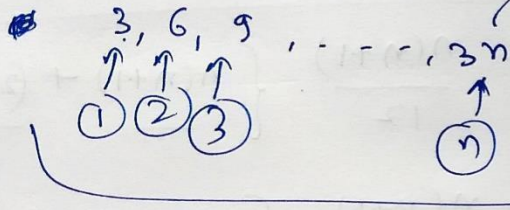 3, 6, 9, - - - -, 3n
1 2 3 n